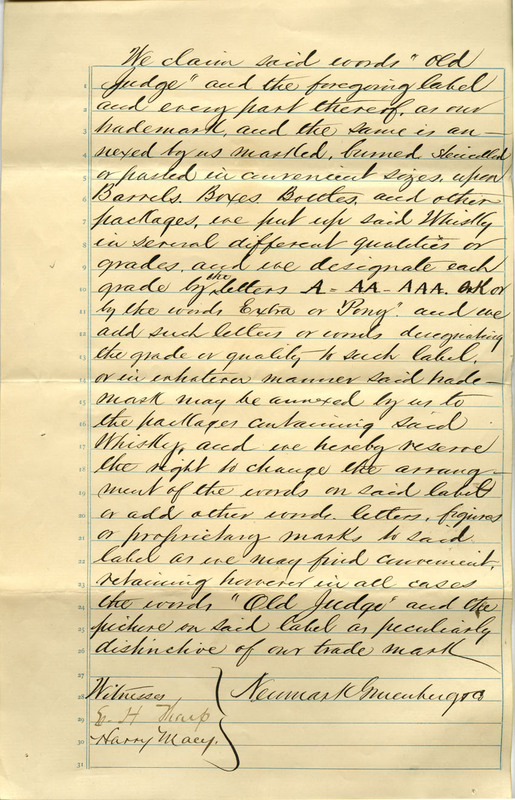 We claim said words "Old
1 Judge" and the foregoing label
2 and every part thereof, as our
3 trademark, and the same is an-
4 nexed by us marked, burned, stencilled
5 or pasted in convenient sizes, upon
6 Barrels, Boxes Bottles, and other
7 packages, we put up said Whisky
8 in several different qualities or
9 grades, and we designate each
10 grade by the letters A - AA - AAA. or
11 by the words Extra or "Pony" and we
12 add such letters or words designating
13 the grade or quality to such label,
14 or in whatever manner said trade-
15 mark may be annexed by us to
16 the packages containing said
17 Whisky, and we hereby reserve
18 the right to change the arrang-
19 ment of the words on said label
20 or add other words, letters, figures
21 or proprietary marks to said
22 label as we may find convenient,
23 retaining however in all cases
24 the words "Old Judge" and the
25 picture on said label as peculiarly
26 distinctive of our trade mark
27
28 Witnesses Newmark Gruenberg & Co
29 H Tharp
30 Harry Macy.
31